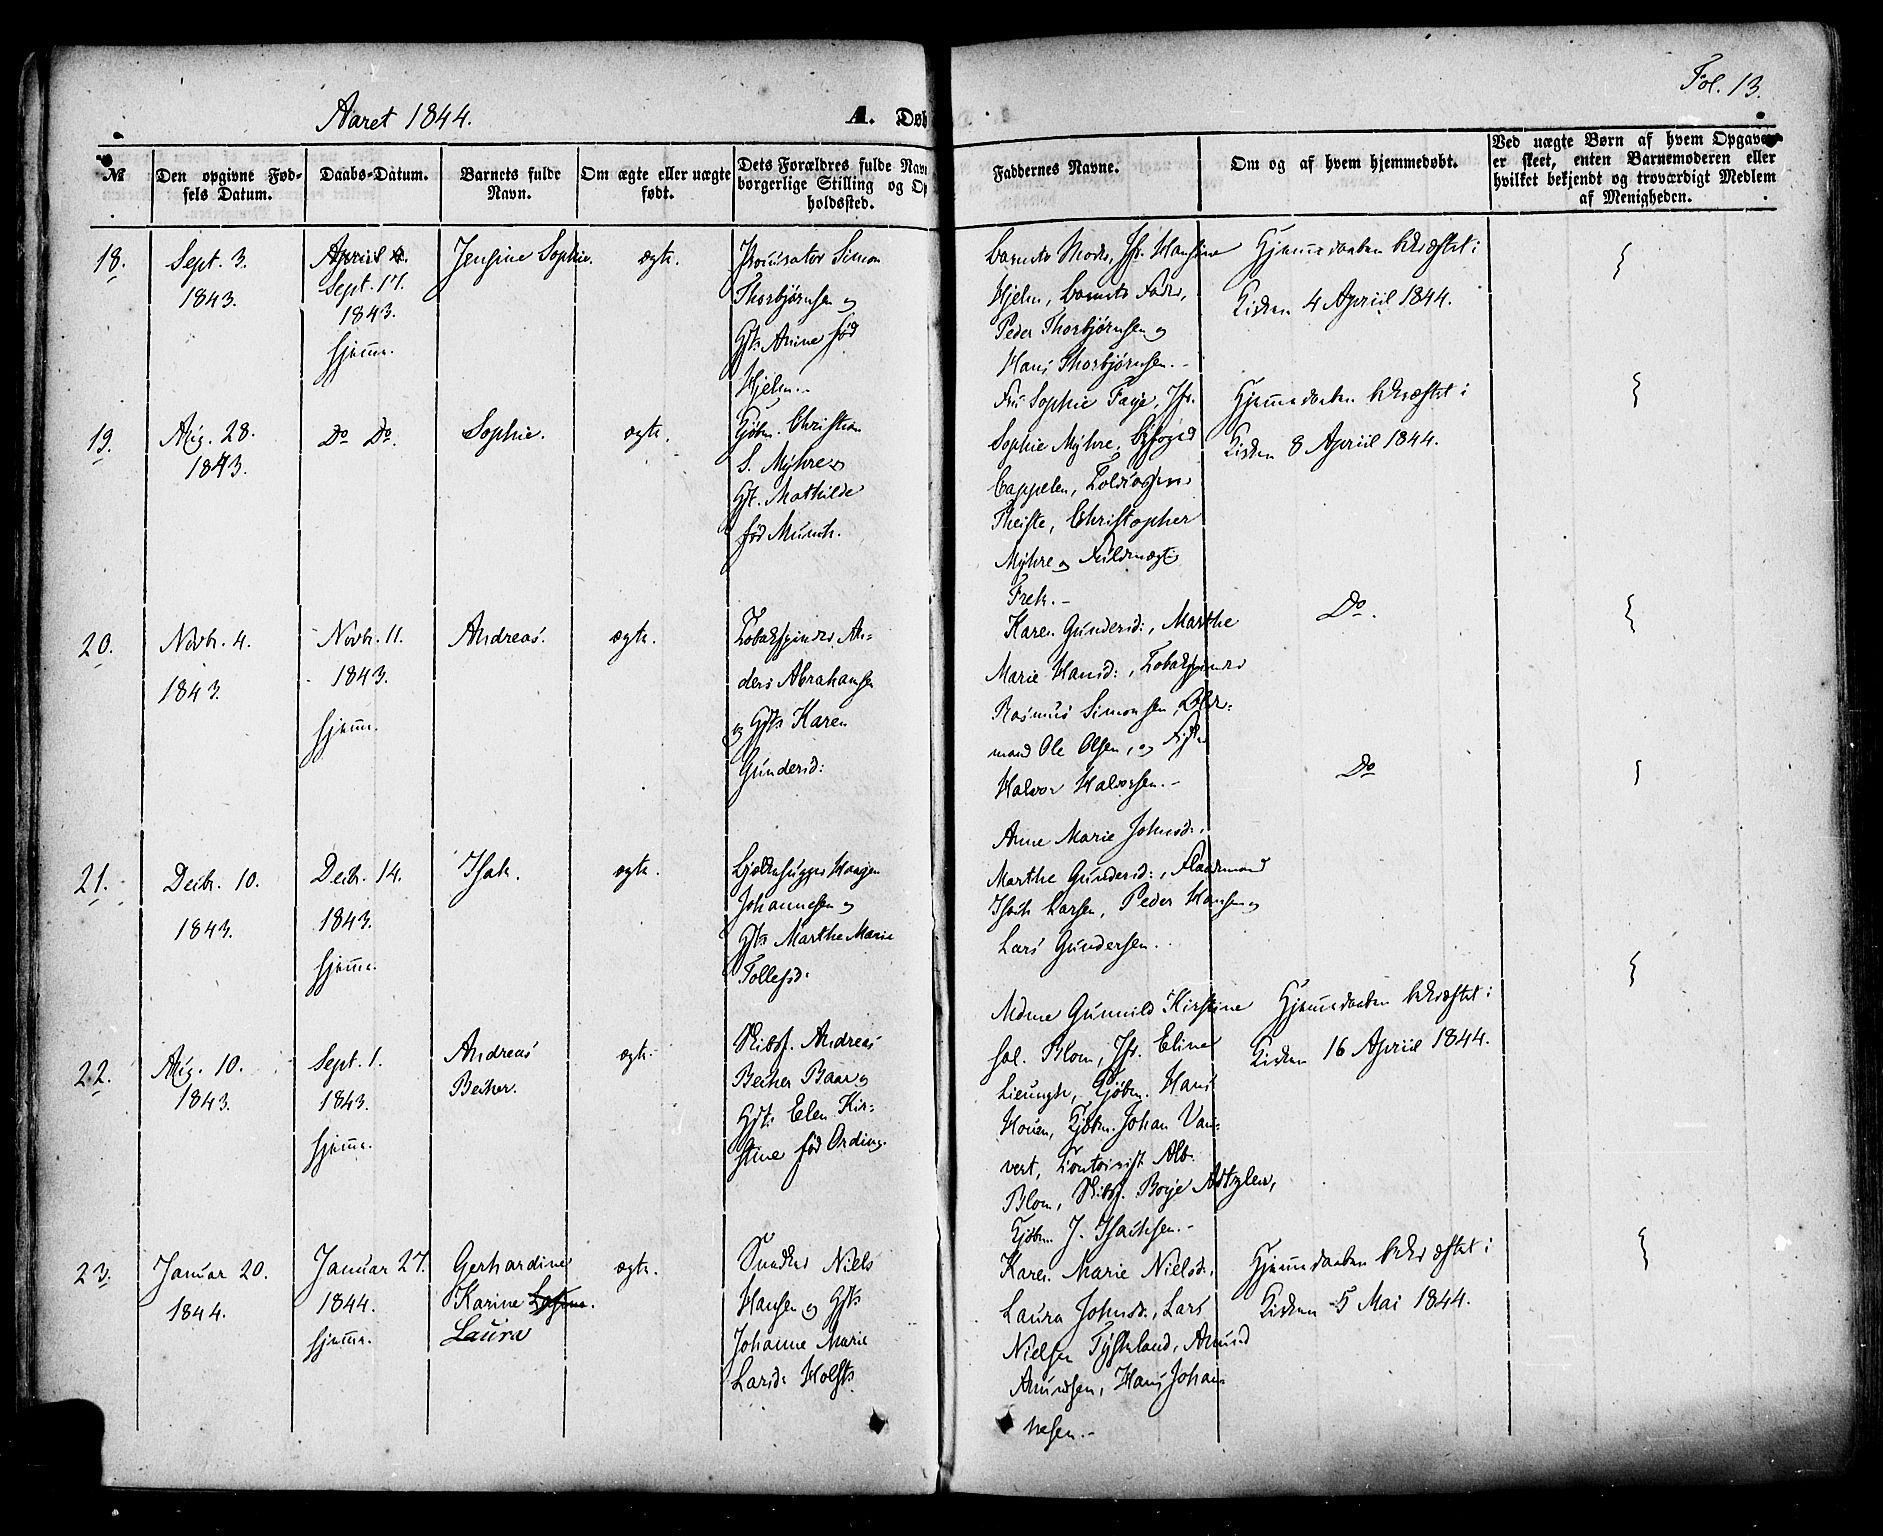 Fol. 13.
Aaret 1844.
A. Døb
№
Den opgivne Fød-
sels Datum.
Daabs-Datum.
Barnets fulde
Navn.
Om ægte eller uægte
født.
Dets Forældres fulde Nav
borgerlige Stilling og Op
holdssted.
Faddernes Navne.
Om og af hvem hjemmedøbt.
Ved uægte Børn af hvem Opgaven
er skeet, enten Barnemoderen eller
hvilket bekjendt og troværdigt Medlem
af Menigheden.
18.
Sept. 3.
1843.
April 4.
Sept. 17.
1843.
hjemme.
Jensine Sophie.
ægte.
Simon
Thorbjørnsen og
Gift. Anine fød
Hjelm.
Barnets Moder, Jfr. Hansine
Hjelm, Barnets Fader,
Peder Thorbjørnsen og
Hans Thorbjørnsen.-
Hjemmedaaben bekræftet i
Kirken 4 Apriil 1844.
19.
Aug. 28.
1843.
Do Do.
Sophie.
ægte.
Kjøbm. Christian
S. Myhre og
Hst. Mathilde
fød Munch.
Fru Sophie Faye, Jfr.
Sophie Myhre, Byfoged
Cappelen,
Theiste, Christopher
Myhre og Fuldmægtig
Frek.-
Hjemmedaaben bekræftet i
Kirken 8 Apriil 1844.
20.
Novbr. 4.
1843.
Novbr. 11.
1843.
hjemme.
Andreas.
ægte.
Tobakspinder An-
ders Abrahamsen
og Hst. Karen
Gundersd:
Karen Gundersd:, Marthe
Marie Hansd:, Tobakspinder
Rasmus Simonsen,
mand Ole Olsen, og
Halvor Halvorsen.-
Do.
21.
Decbr. 10.
1843.
Decbr. 14.
1843.
hjemme.
Isak.
ægte.
Haagen
Johannesen og
Hst. Marthe Marie
Tollefsd:
Anne Marie Johnsd:,
Marthe Gundersd:,
Isach Larsen, Peder Hansen og
Lars Gundersen.
Do
22.
Aug. 10.
1843.
Sept. 1.
1843.
hjemme.
Andreas
Becher.
ægte.
Skibsf. Andreas
Becher Baar og
Hst. Elen Kir-
stine fød Ording.
Mdme Gunnild Kirstine
sal. Blom, Jfr. Eline
Lieungh, Kjøbm. Hans
Houen, Kjøbm. Johan Van-
vert, Contorist Alb.
Blom, Skibsf. Borje
Kjøbm. J. Isachsen.-
Hjemmedaaben bekræftet i
Kirken 16 Apriil 1844.
23.
Januar 20.
1844.
Januar 27.
1844.
hjemme.
Gerhardine
Karine
Laura
ægte.
Snedker Niels
Hansen og Hst.
Johanne Marie
Larsd: Holst.
Karen Marie Nielsd:,
Laura Johnsd:, Lars
Nielsen Tyskland, Amund
Amundsen, Hans Johan-
nesen.-
Hjemmedaaben bekræftet i
Kirken 5 Mai 1844.